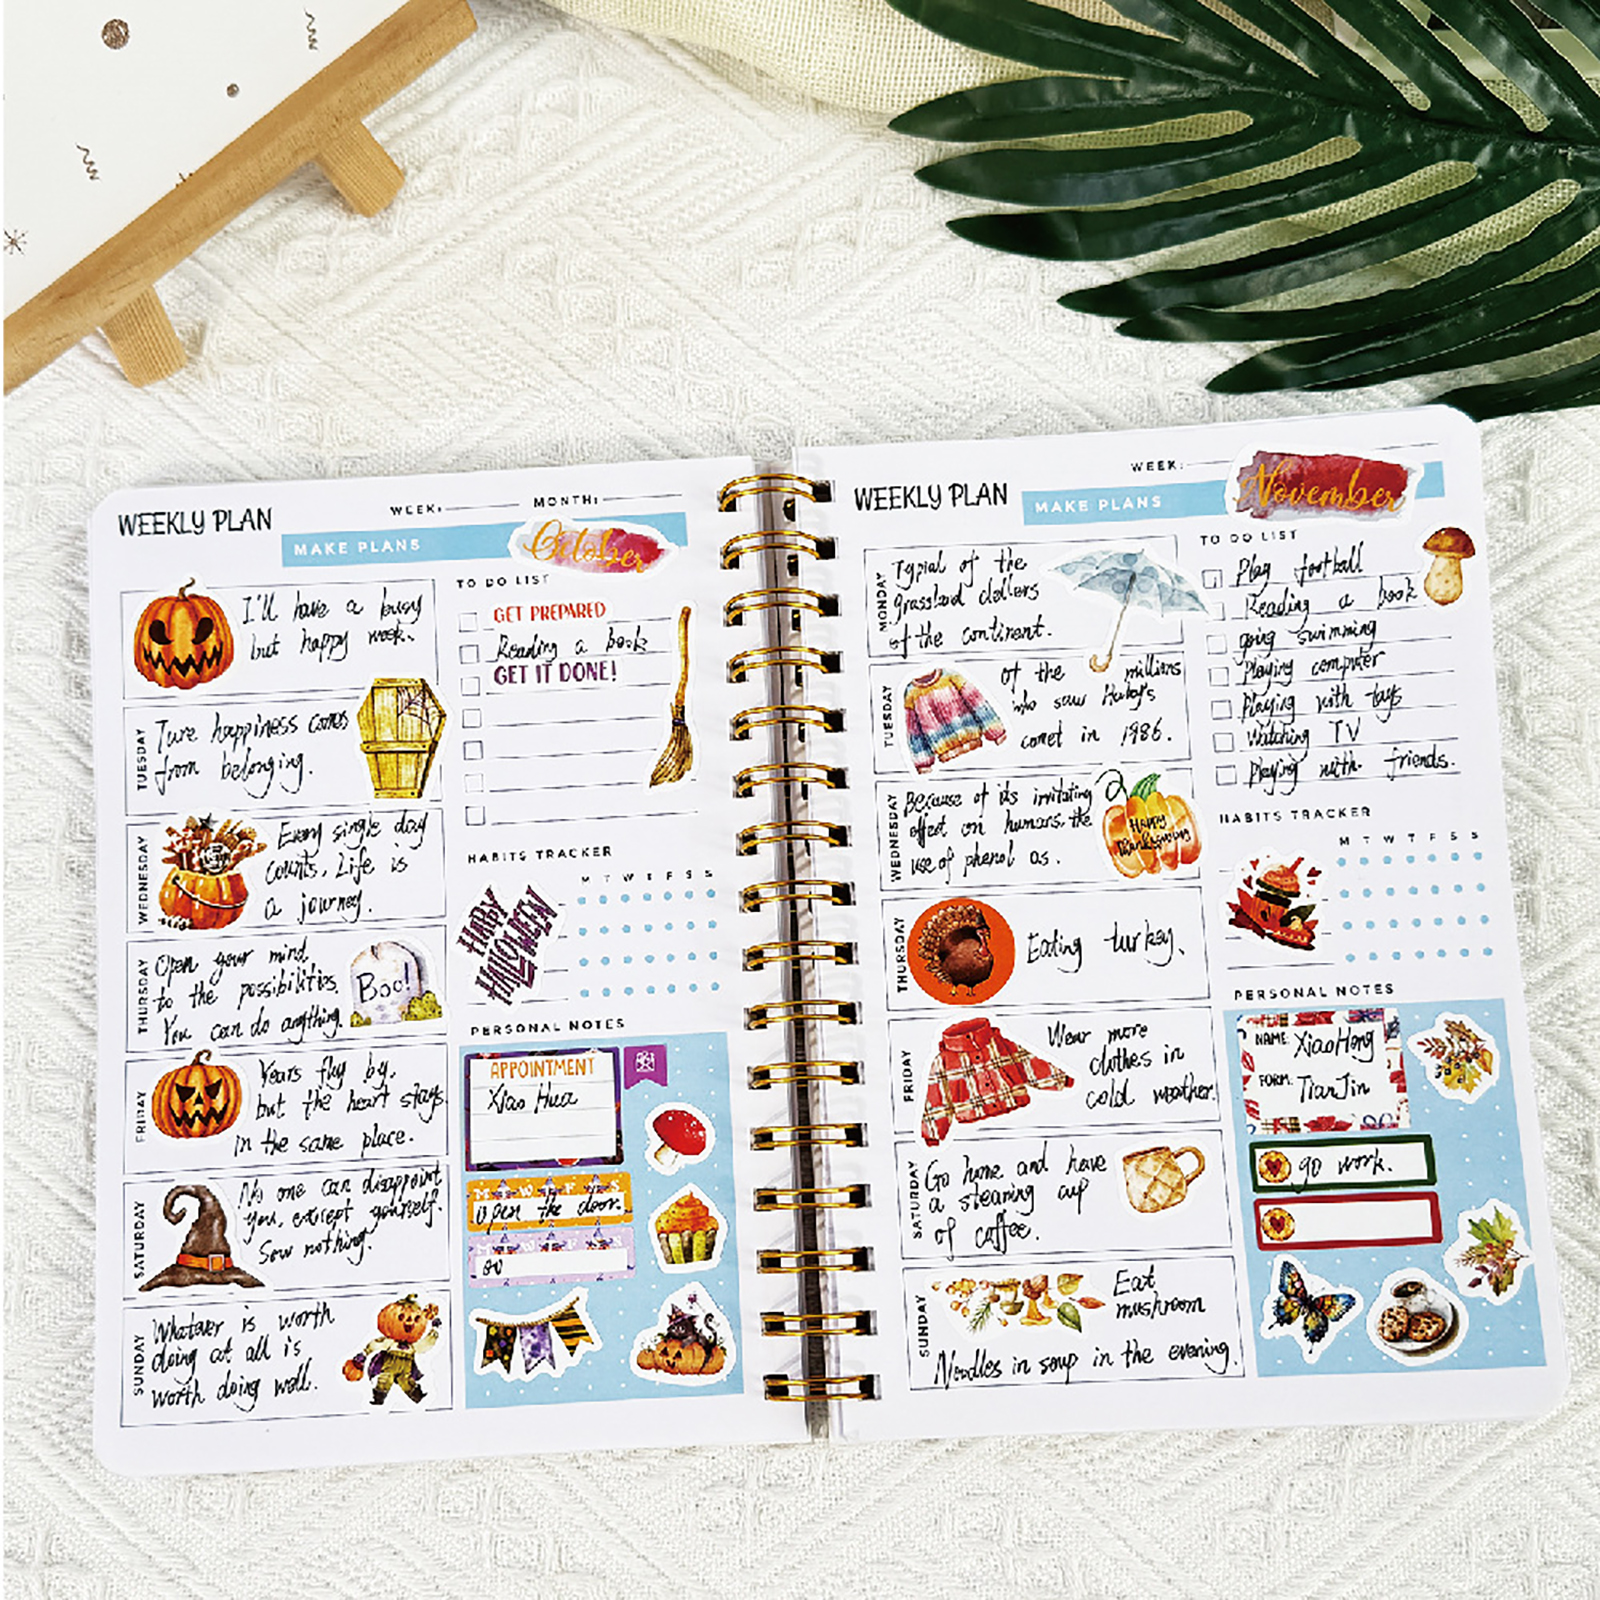 WEEKLY PLAN
WEEK:
MONTH:
MAKE PLANS
October
I'll have a busy
but happy week.
TUESDAY
Ture happiness comes
from belonging.
WEDNESDAY
Every single day
counts. Life is
a journey.
THURSDAY
Open your mind
to the possibilities.
You can do anything.
Boo!
FRIDAY
Years fly by,
but the heart stays
in the same place.
SATURDAY
No one can disappoint
you, except yourself.
Sow nothing.
SUNDAY
Whatever is worth
doing at all is
worth doing well.
TO DO LIST
GET PREPARED
Reading a book
GET IT DONE!
HABITS TRACKER
M T W T F S S
HALLOWEEN
PERSONAL NOTES
APPOINTMENT
Xiao Hua
open the door.
go
WEEKLY PLAN
WEEK:
MAKE PLANS
November
MONDAY
Typial of the
grassland dollers
of the continent.
TUESDAY
of the millions
who saw Haley's
comet in 1986.
WEDNESDAY
Because of its irritating
effect on humans, the
use of phenol as.
Happy
Thanksgiving
THURSDAY
Eating turkey.
FRIDAY
Wear more
clothes in
cold weather.
SATURDAY
Go home and have
a steaming cup
of coffee.
SUNDAY
Eat
mushroom
Noodles in soup in the evening.
TO DO LIST
Play football
Reading a book
going swimming
Playing computer
Playing with toys
Watching TV
Playing with friends.
HABITS TRACKER
M T W T F S S
PERSONAL NOTES
NAME: XiaoHong
FORM: TianJin
go work.